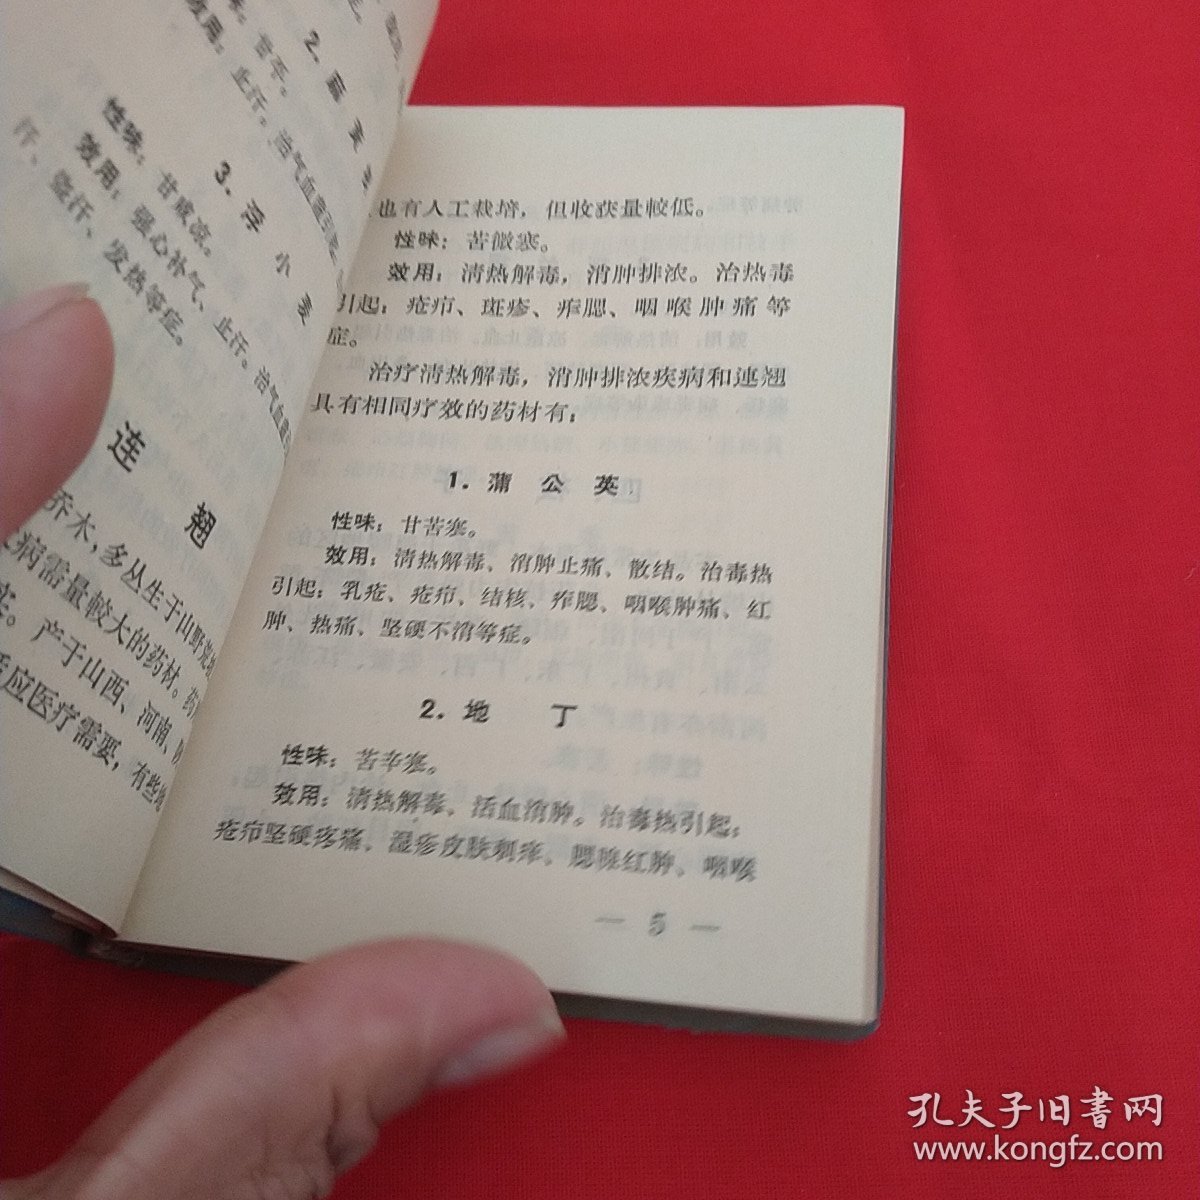 2.
止汗。治气血虚引
3.浮小麦
性味：甘咸凉。
效用：强心补气、止汗。治气血虚
汗、盗汗、发热等症。
连翘
乔木，多丛生于山野荒
病需量較大的药材。药
产于山西、河南、
应医疗需要，有些
也有人工栽培，但收获量較低。
性味：苦微寒。
效用：清热解毒，消肿排浓。治热毒
引起：疮疖、斑疹、痄腮、咽喉肿痛等
症。
治疗清热解毒，消肿排浓疾病和連翘
具有相同疗效的药材有：
1.蒲公英
性味：甘苦寒。
效用：清热解毒、消肿止痛、散结。治毒热
引起：乳疮、疮疖、结核、痄腮、咽喉肿痛、红
肿、热痛、坚硬不消等症。
2.地丁
性味：苦辛寒。
效用：清热解毒、活血消肿。治毒热引起：
疮疖坚硬疼痛、湿疹皮肤刺痒、腮喉红肿、咽喉
— 5 —
孔夫子旧书网
www.kongfz.com